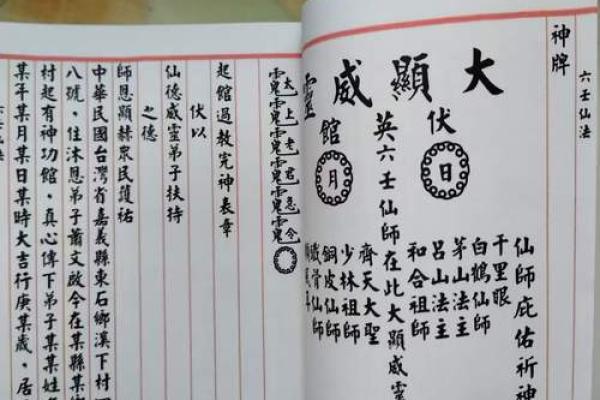 六壬仙法
神牌
大顯威靈
伏
日
英六壬仙師在此大顯威靈
館
月
仙師庇佑祈神
千里眼
白鶴仙師
茅山法主
呂山法主
和合祖師
齊天大聖
少林祖師
銅皮仙師
鐵骨仙師
太上老君急令
起館過教完神表章
伏以
仙德威靈弟子扶持
之德
師恩顯赫眾民護祐
中華民國台灣省嘉義縣東石鄉溪下村
八號，住沐恩弟子蕭文啟今在某縣某
村起有神功館，真心傳下弟子某某姓
某年某月某日某時大吉行庚某歲，居